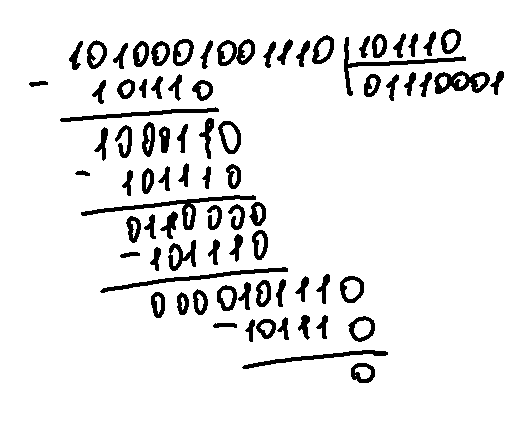 1010001001110 101110
- 101110 01110001
1000110
- 101110
0110000
- 101110
000101110
- 101110
0